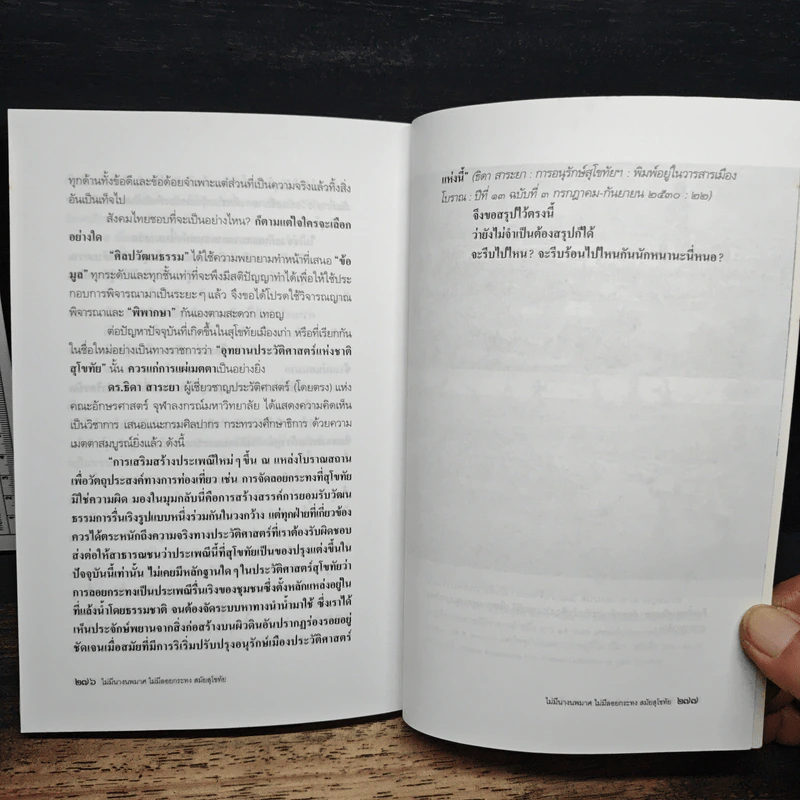 ทุกด้านทั้งข้อดีและข้อด้อยจำเพาะแต่ส่วนที่เป็นความจริงแล้วทิ้งสิ่ง
อันเป็นเท็จไป
สังคมไทยชอบที่จะเป็นอย่างไหน? ก็ตามแต่ใจใครจะเลือก
อย่างใด
"ศิลปวัฒนธรรม" ได้ใช้ความพยายามทำหน้าที่เสนอ "ข้อ
มูล" ทุกระดับและทุกชั้นเท่าที่จะพึงมีสติปัญญาทำได้เพื่อให้ใช้ประ
กอบการพิจารณามาเป็นระยะๆ แล้ว จึงขอได้โปรดใช้วิจารณญาณ
พิจารณาและ "พิพากษา" กันเองตามสะดวก เทอญ
ต่อปัญหาปัจจุบันที่เกิดขึ้นในสุโขทัยเมืองเก่า หรือที่เรียกกัน
ในชื่อใหม่อย่างเป็นทางราชการว่า "อุทยานประวัติศาสตร์แห่งชาติ
สุโขทัย" นั้น ควรแก่การแผ่เมตตาเป็นอย่างยิ่ง
ดร.ธิดา สาระยา ผู้เชี่ยวชาญประวัติศาสตร์ (โดยตรง) แห่ง
คณะอักษรศาสตร์ จุฬาลงกรณ์มหาวิทยาลัย ได้แสดงความคิดเห็น
เป็นวิชาการ เสนอแนะกรมศิลปากร กระทรวงศึกษาธิการ ด้วยความ
เมตตาสมบูรณ์ยิ่งแล้ว ดังนี้
"การเสริมสร้างประเพณีใหม่ๆ ขึ้น ณ แหล่งโบราณสถาน
เพื่อวัตถุประสงค์ทางการท่องเที่ยว เช่น การจัดลอยกระทงที่สุโขทัย
มิใช่ความผิด มองในมุมกลับนี่คือการสร้างสรรค์การยอมรับวัฒน
ธรรมการรื่นเริงรูปแบบหนึ่งร่วมกันในวงกว้าง แต่ทุกฝ่ายที่เกี่ยวข้อง
ควรได้ตระหนักถึงความจริงทางประวัติศาสตร์ที่เราต้องรับผิดชอบ
ส่งต่อให้สาธารณชนว่าประเพณีนี้ที่สุโขทัยเป็นของปรุงแต่งขึ้นใน
ปัจจุบันนี้เท่านั้น ไม่เคยมีหลักฐานใดๆ ในประวัติศาสตร์สุโขทัยว่า
การลอยกระทงเป็นประเพณีรื่นเริงของชุมชนซึ่งตั้งหลักแหล่งอยู่ใน
ที่แล้งน้ำโดยธรรมชาติ จนต้องจัดระบบหาทางนำน้ำมาใช้ ซึ่งเราได้
เห็นประจักษ์พยานจากสิ่งก่อสร้างบนผิวดินอันปรากฏร่องรอยอยู่
ชัดเจนเมื่อสมัยที่มีการริเริ่มปรับปรุงอนุรักษ์เมืองประวัติศาสตร์
๒๗๖ ไม่มีนางนพมาศ ไม่มีลอยกระทง สมัยสุโขทัย
แห่งนี้" (ธิดา สาระยา : การอนุรักษ์สุโขทัยฯ : พิมพ์อยู่ในวารสารเมือง
โบราณ : ปีที่ ๑๓ ฉบับที่ ๓ กรกฎาคม-กันยายน ๒๕๓๐ : ๒๒)
จึงขอสรุปไว้ตรงนี้
ว่ายังไม่จำเป็นต้องสรุปก็ได้
จะรีบไปไหน? จะรีบร้อนไปไหนกันนักหนานะนี่หนอ?
ไม่มีนางนพมาศ ไม่มีลอยกระทง สมัยสุโขทัย ๒๗๗